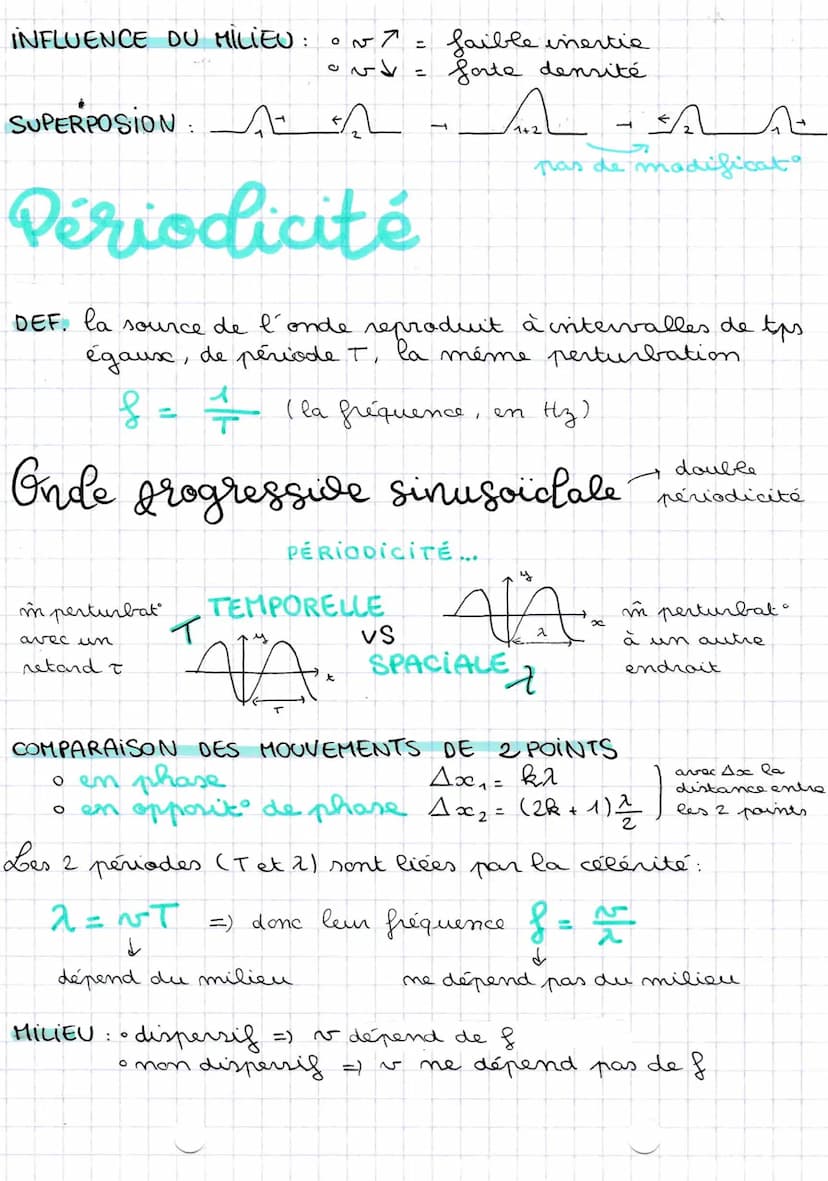 INFLUENCE DU MILIEU : ◦ v ↗ = faible inertie
◦ v ↓ = forte densité
SUPERPOSION : 1 → ← 2 → 1+2 → ← 2 1 →
pas de modificat°
Périodicité
DEF. la source de l'onde reproduit à intervalles de tps
égaux, de période T, la même perturbation
f = 1/T (la fréquence, en Hz)
Onde progressive sinusoïdale → double
périodicité
PÉRIODICITÉ...
m̂ perturbat°
avec un
retard τ
T TEMPORELLE
y
t
T
VS
SPACIALE λ
y
x
λ
m̂ perturbat°
à un autre
endroit
COMPARAISON DES MOUVEMENTS DE 2 POINTS
◦ en phase Δx₁ = kλ
◦ en opposit° de phase Δx₂ = (2k + 1) λ/2
avec Δx la
distance entre
les 2 points
Les 2 périodes (T et λ) sont liées par la célérité :
λ = vT => donc leur fréquence f = v/λ
↓ ↓
dépend du milieu ne dépend pas du milieu
MILIEU : ◦ dispersif => v dépend de f
◦ non dispersif => v ne dépend pas de f